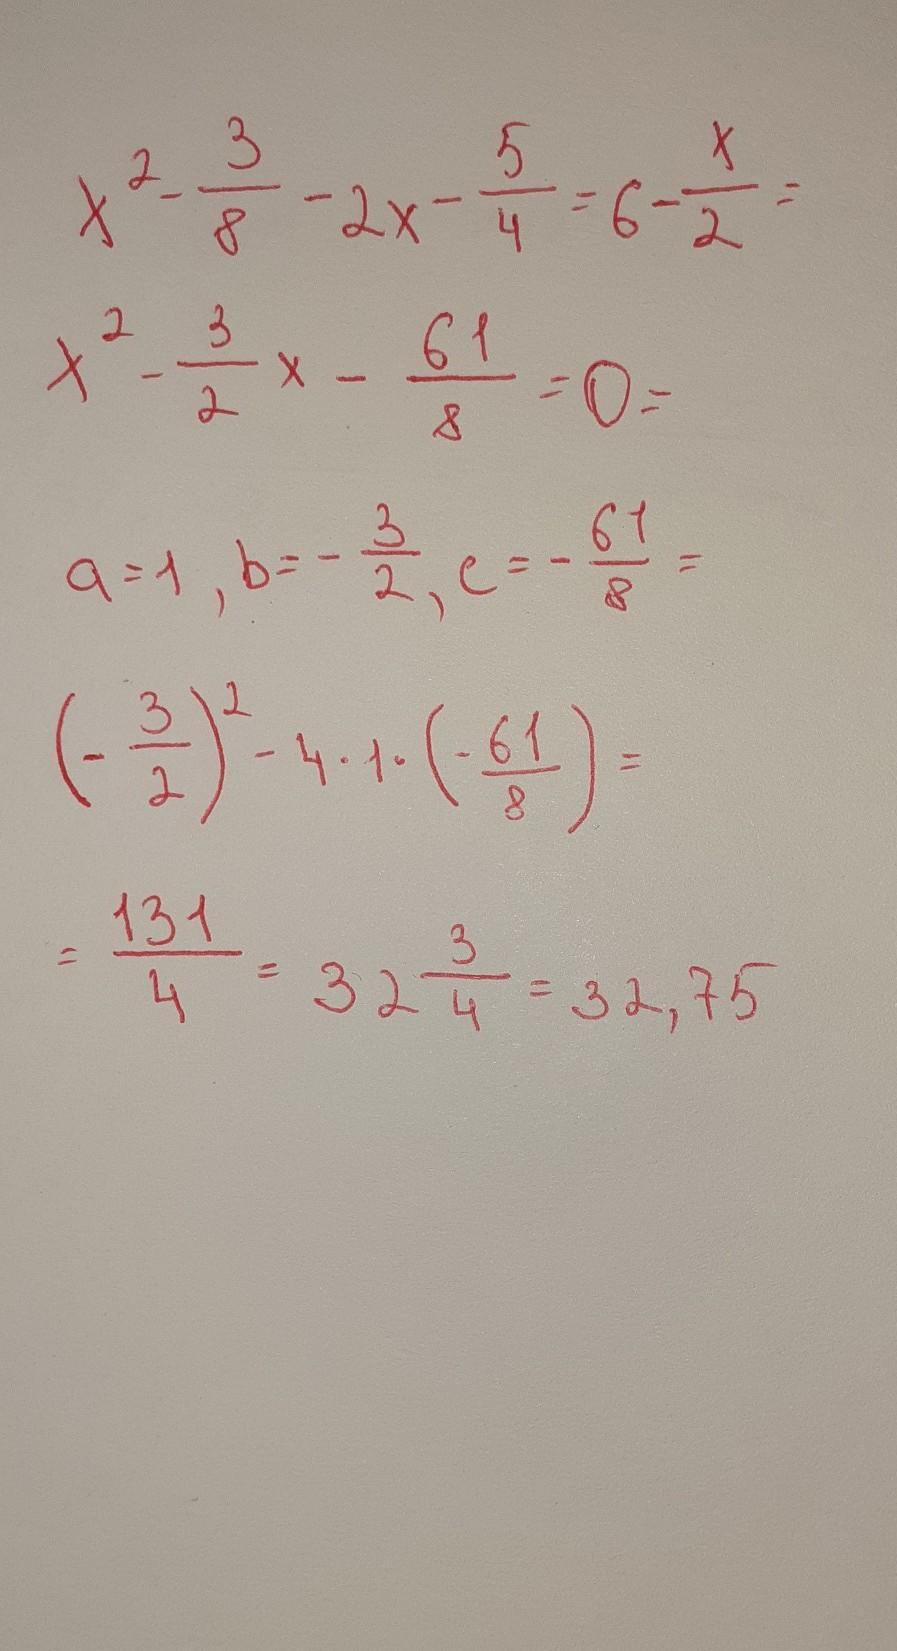 x² - 3/8 - 2x - 5/4 = 6 - x/2 =
x² - 3/2 x - 61/8 = 0 =
a = 1, b = - 3/2, c = - 61/8 =
(- 3/2)² - 4 · 1 · (- 61/8) =
= 131/4 = 32 3/4 = 32,75